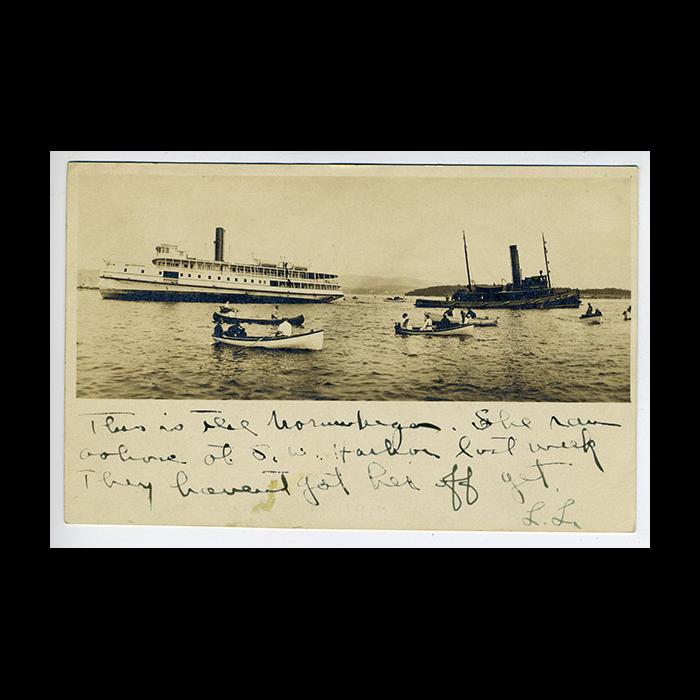 This is the Norumbega. She ran
ashore at S. W. Harbor last week
They haven't got her off yet.
L. L.